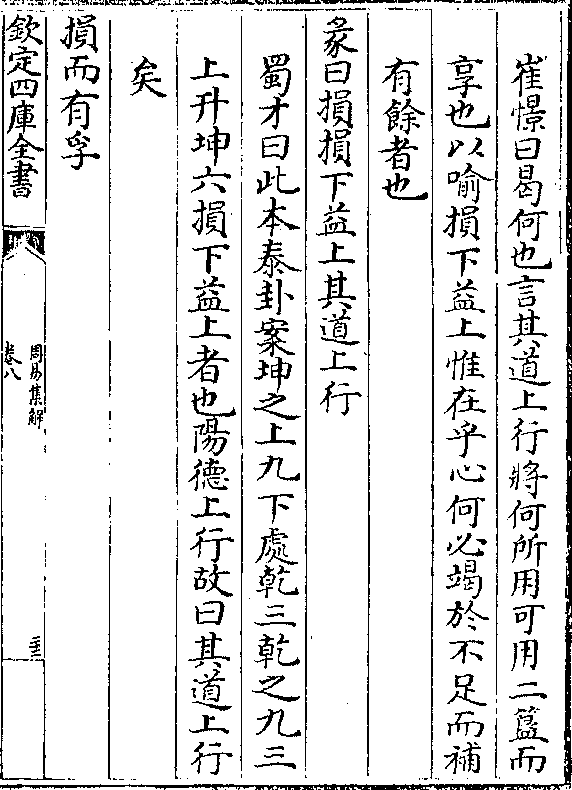 崔憬曰曷何也言其道上行將何所用可用二簋而
享也以喻損下益上惟在乎心何必竭於不足而補
有餘者也
彖曰損損下益上其道上行
蜀才曰此本泰卦案坤之上九下處乾三乾之九三
上升坤六損下益上者也陽德上行故曰其道上行
矣
損而有孚
欽定四庫全書
周易集解
卷八